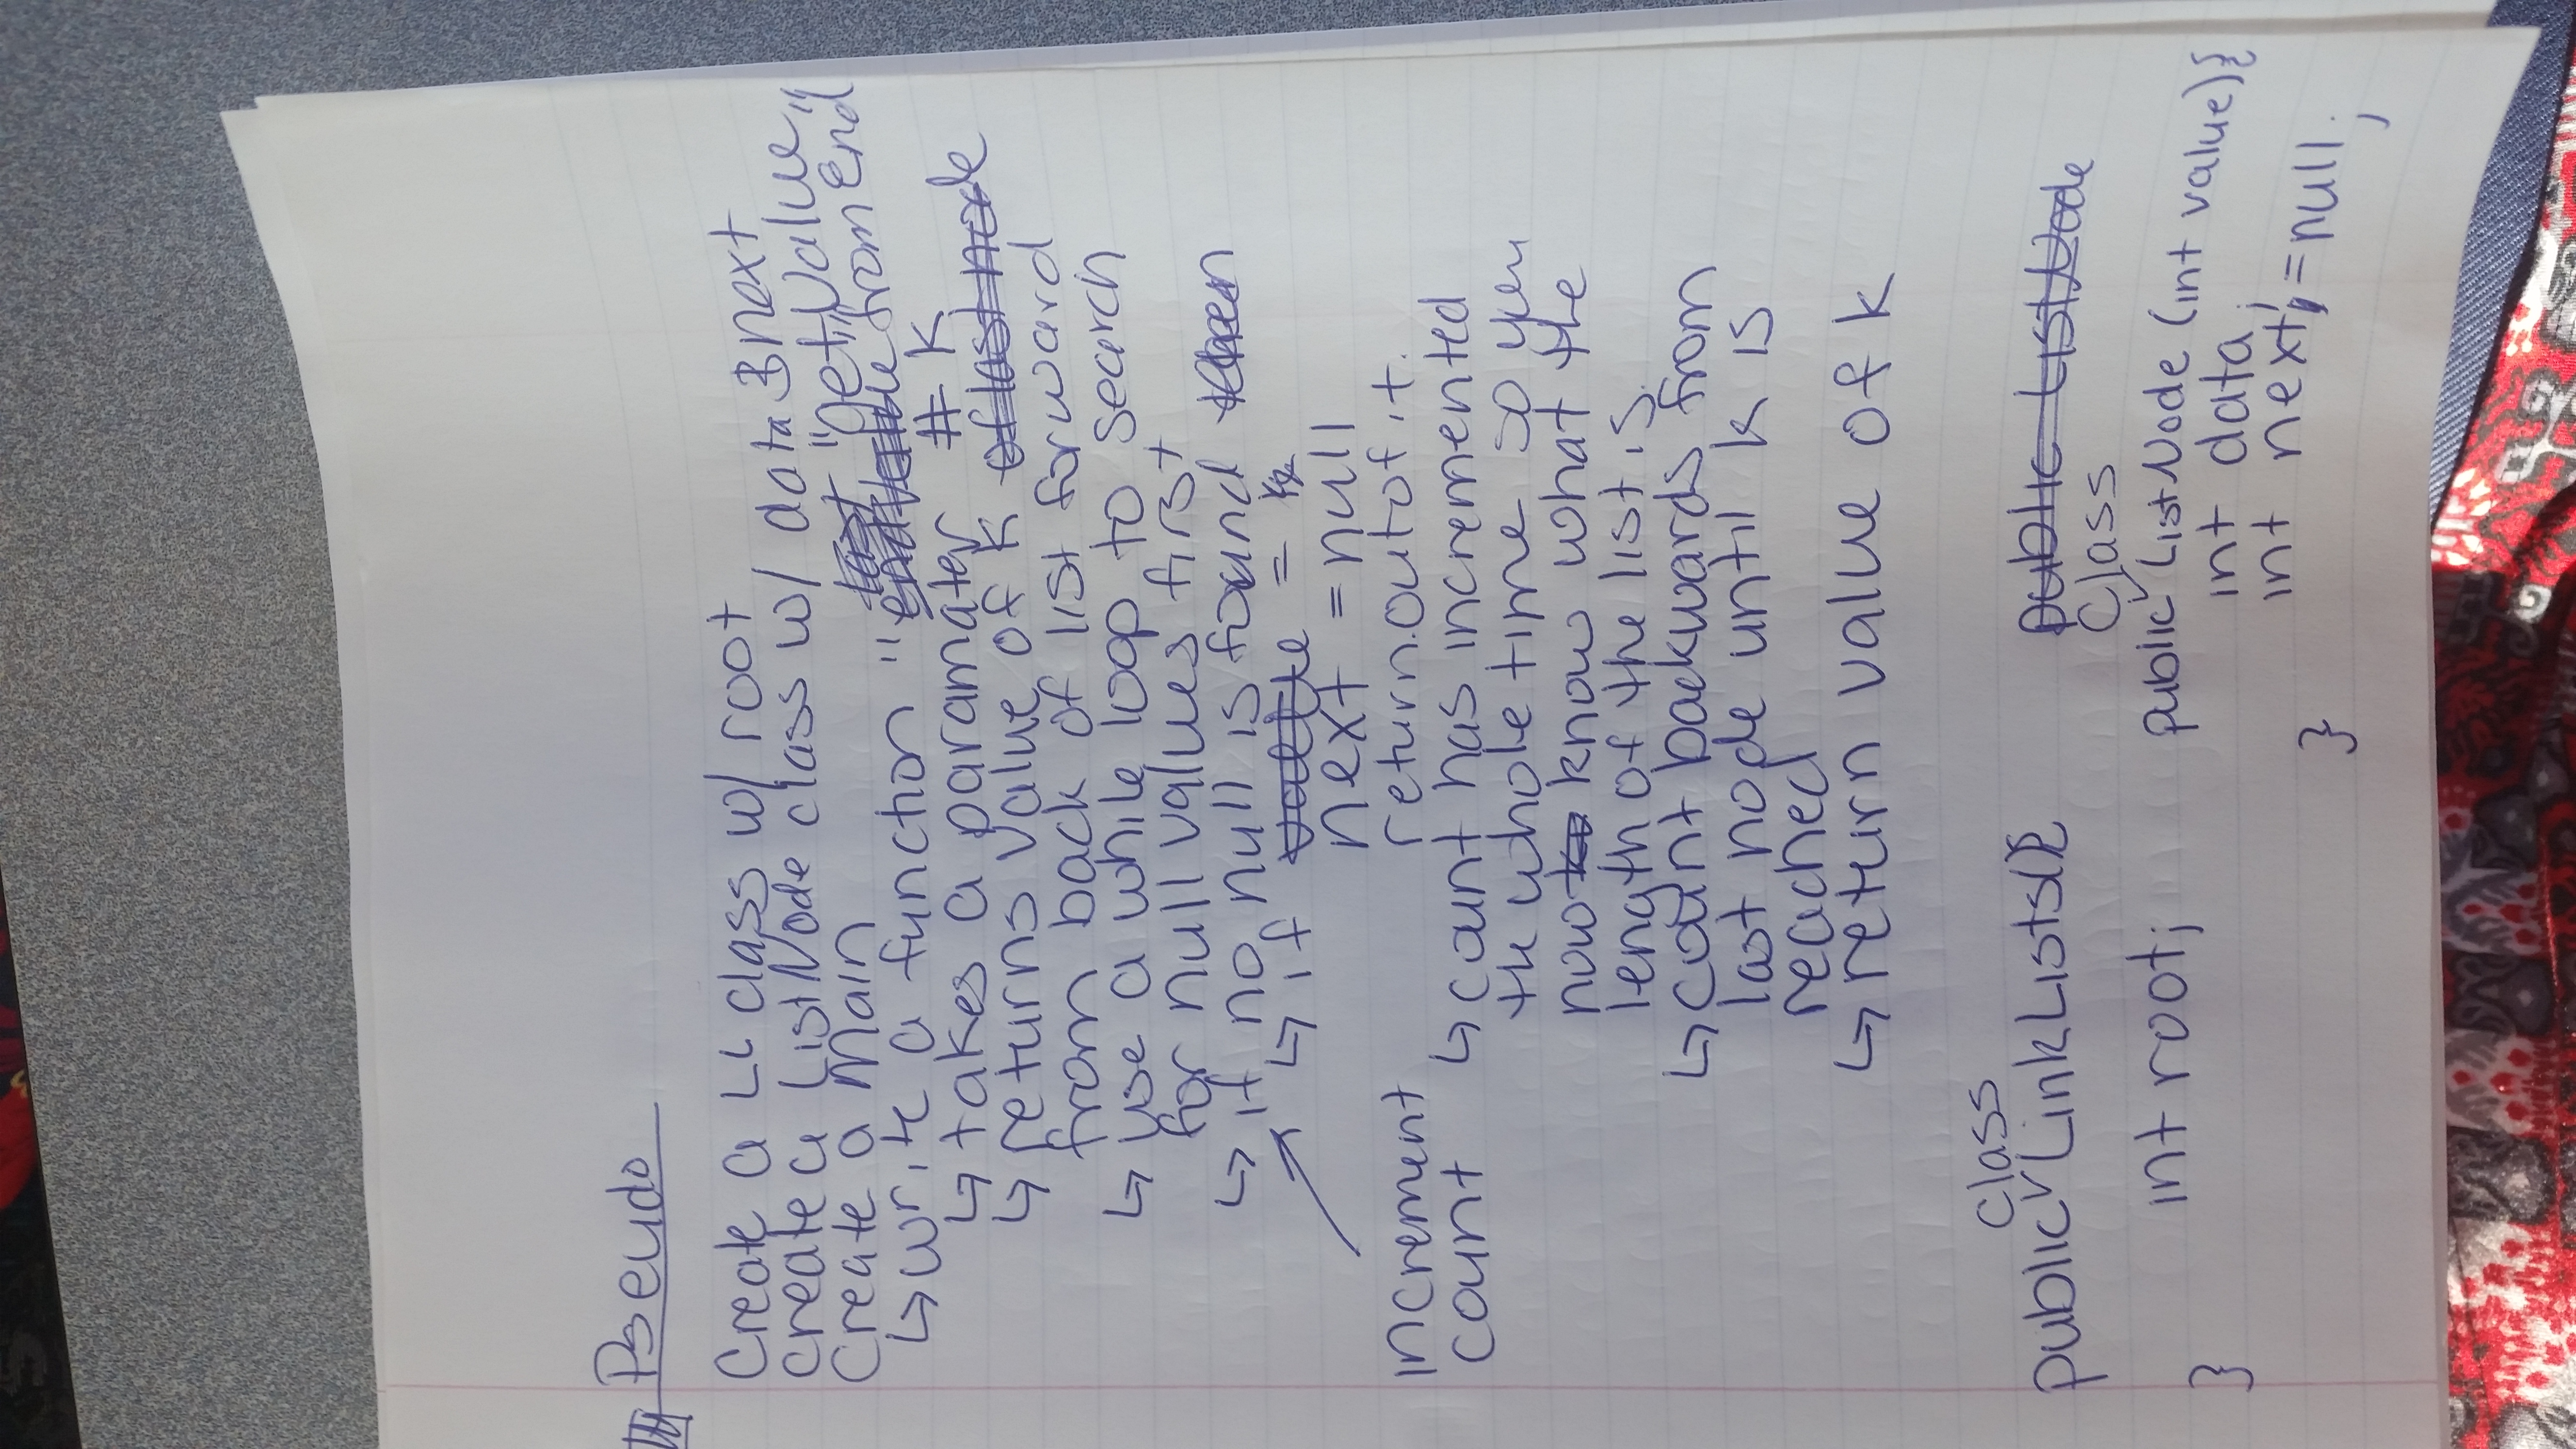 Pseudo
Create a LL class w/ root
create a ListNode class w/ data & next
Create a Main
last, "get Value
↳ write a function "endvalue from End"
↳ takes a paramater # k
↳ returns value of k of last node
from back of list forward
↳ use a while loop to search
for null values first
↳ if no null is found then
↳ if value = k
next = null
return out of it.
increment
count
↳ count has incremented
the whole time so you
now know what the
length of the list is.
↳ count backwards from
last node until k is
reached
↳ return value of k
class
public ✓ LinkLists(){
int root;
}
public ListNode
class
public ✓ ListNode (int value){
int data;
int next; = null;
}